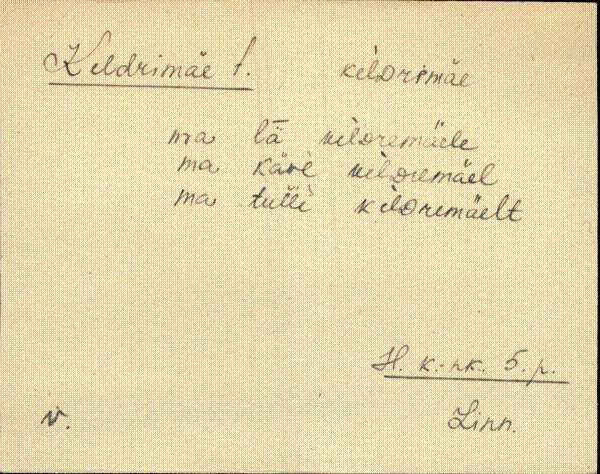 Keldrimäe t. kildrimäe
ma lä kildremäele
ma käve kildremäel
ma tulli kildremäelt
H. k.-nk. 5. p.
Linn.
v.